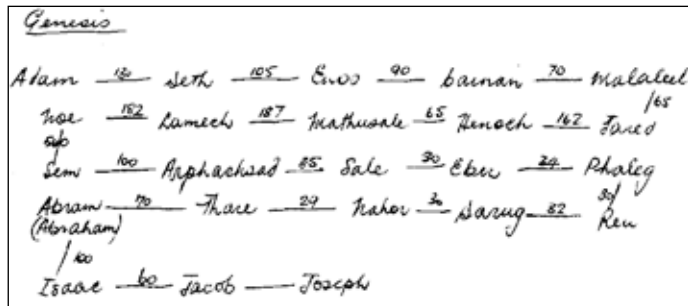 Genesis
Adam 130 Seth 105 Enos 90 Cainan 70 Malaleel
/65
Noe 182 Lamech 187 Mathusale 65 Henoch 162 Jared
Sem 100 Arphachsad 35 Sale 30 Eber 34 Phaleg
30/
Abram 70 Thare 29 Nahor 30 Sarug 32 Reu
(Abraham)
/100
Isaac 60 Jacob Joseph